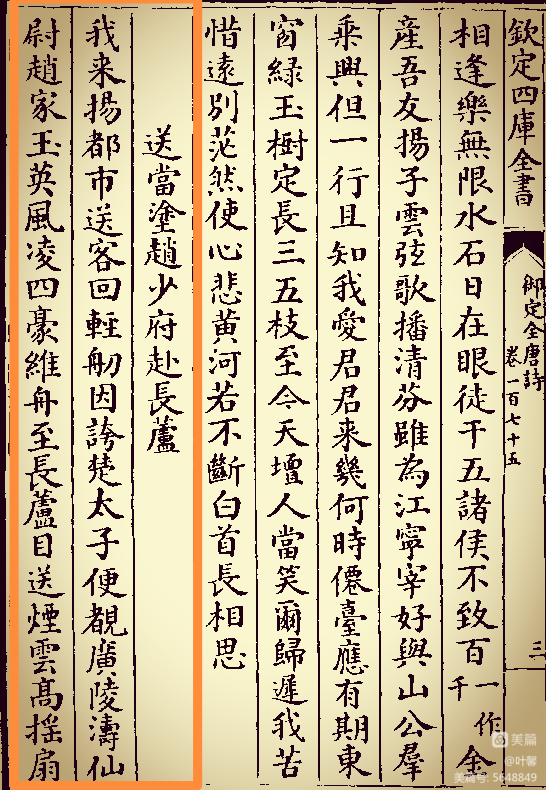 欽定四庫全書
御定全唐詩
卷一百七十五
三
相逢樂無限水石日在眼徒干五諸侯不致百一作千金
產吾友揚子雲弦歌播清芬雖為江寧宰好與山公羣
乗興但一行且知我愛君君来幾何時僊臺應有期東
窗綠玉樹定長三五枝至今天壇人當笑爾歸遲我苦
惜遠別茫然使心悲黄河若不斷白首長相思
送當塗趙少府赴長蘆
我来揚都市送客回輕舠因誇楚太子便覩廣陵濤仙
尉趙家玉英風凌四豪維舟至長蘆目送煙雲高揺扇
美篇
@叶馨
美篇号: 5648849